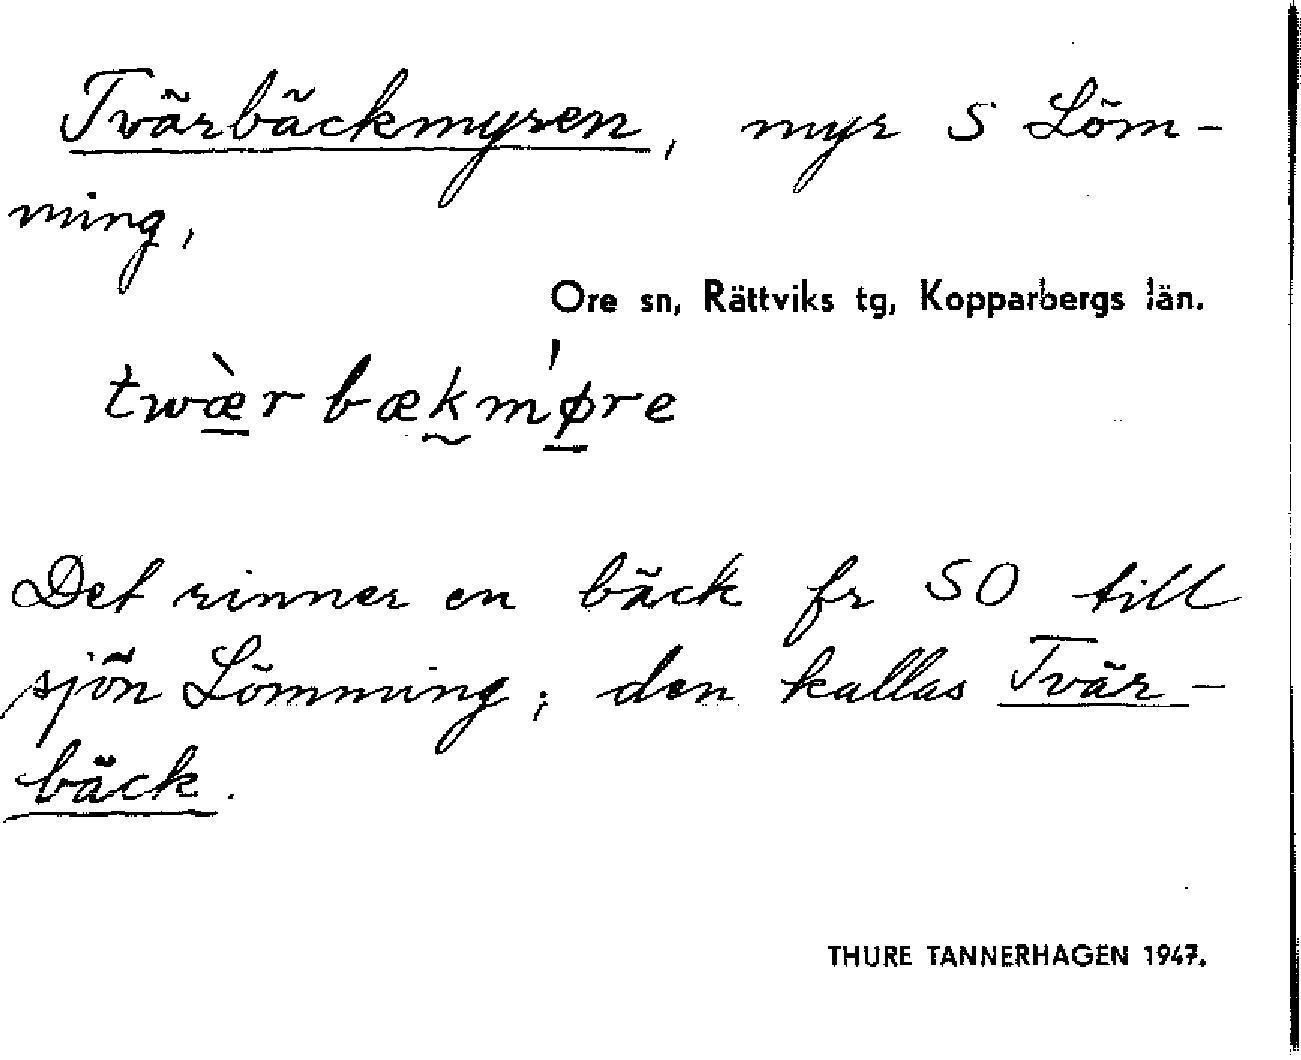 Tvärbäckmyren, myr S Löm-
ming,
Ore sn, Rättviks tg, Kopparbergs län.
twæ̠̀r bæk̰mǿ̠re
Det rinner en bäck fr SO till
sjön Lömming; den kallas Tvär-
bäck.
THURE TANNERHAGEN 1947.